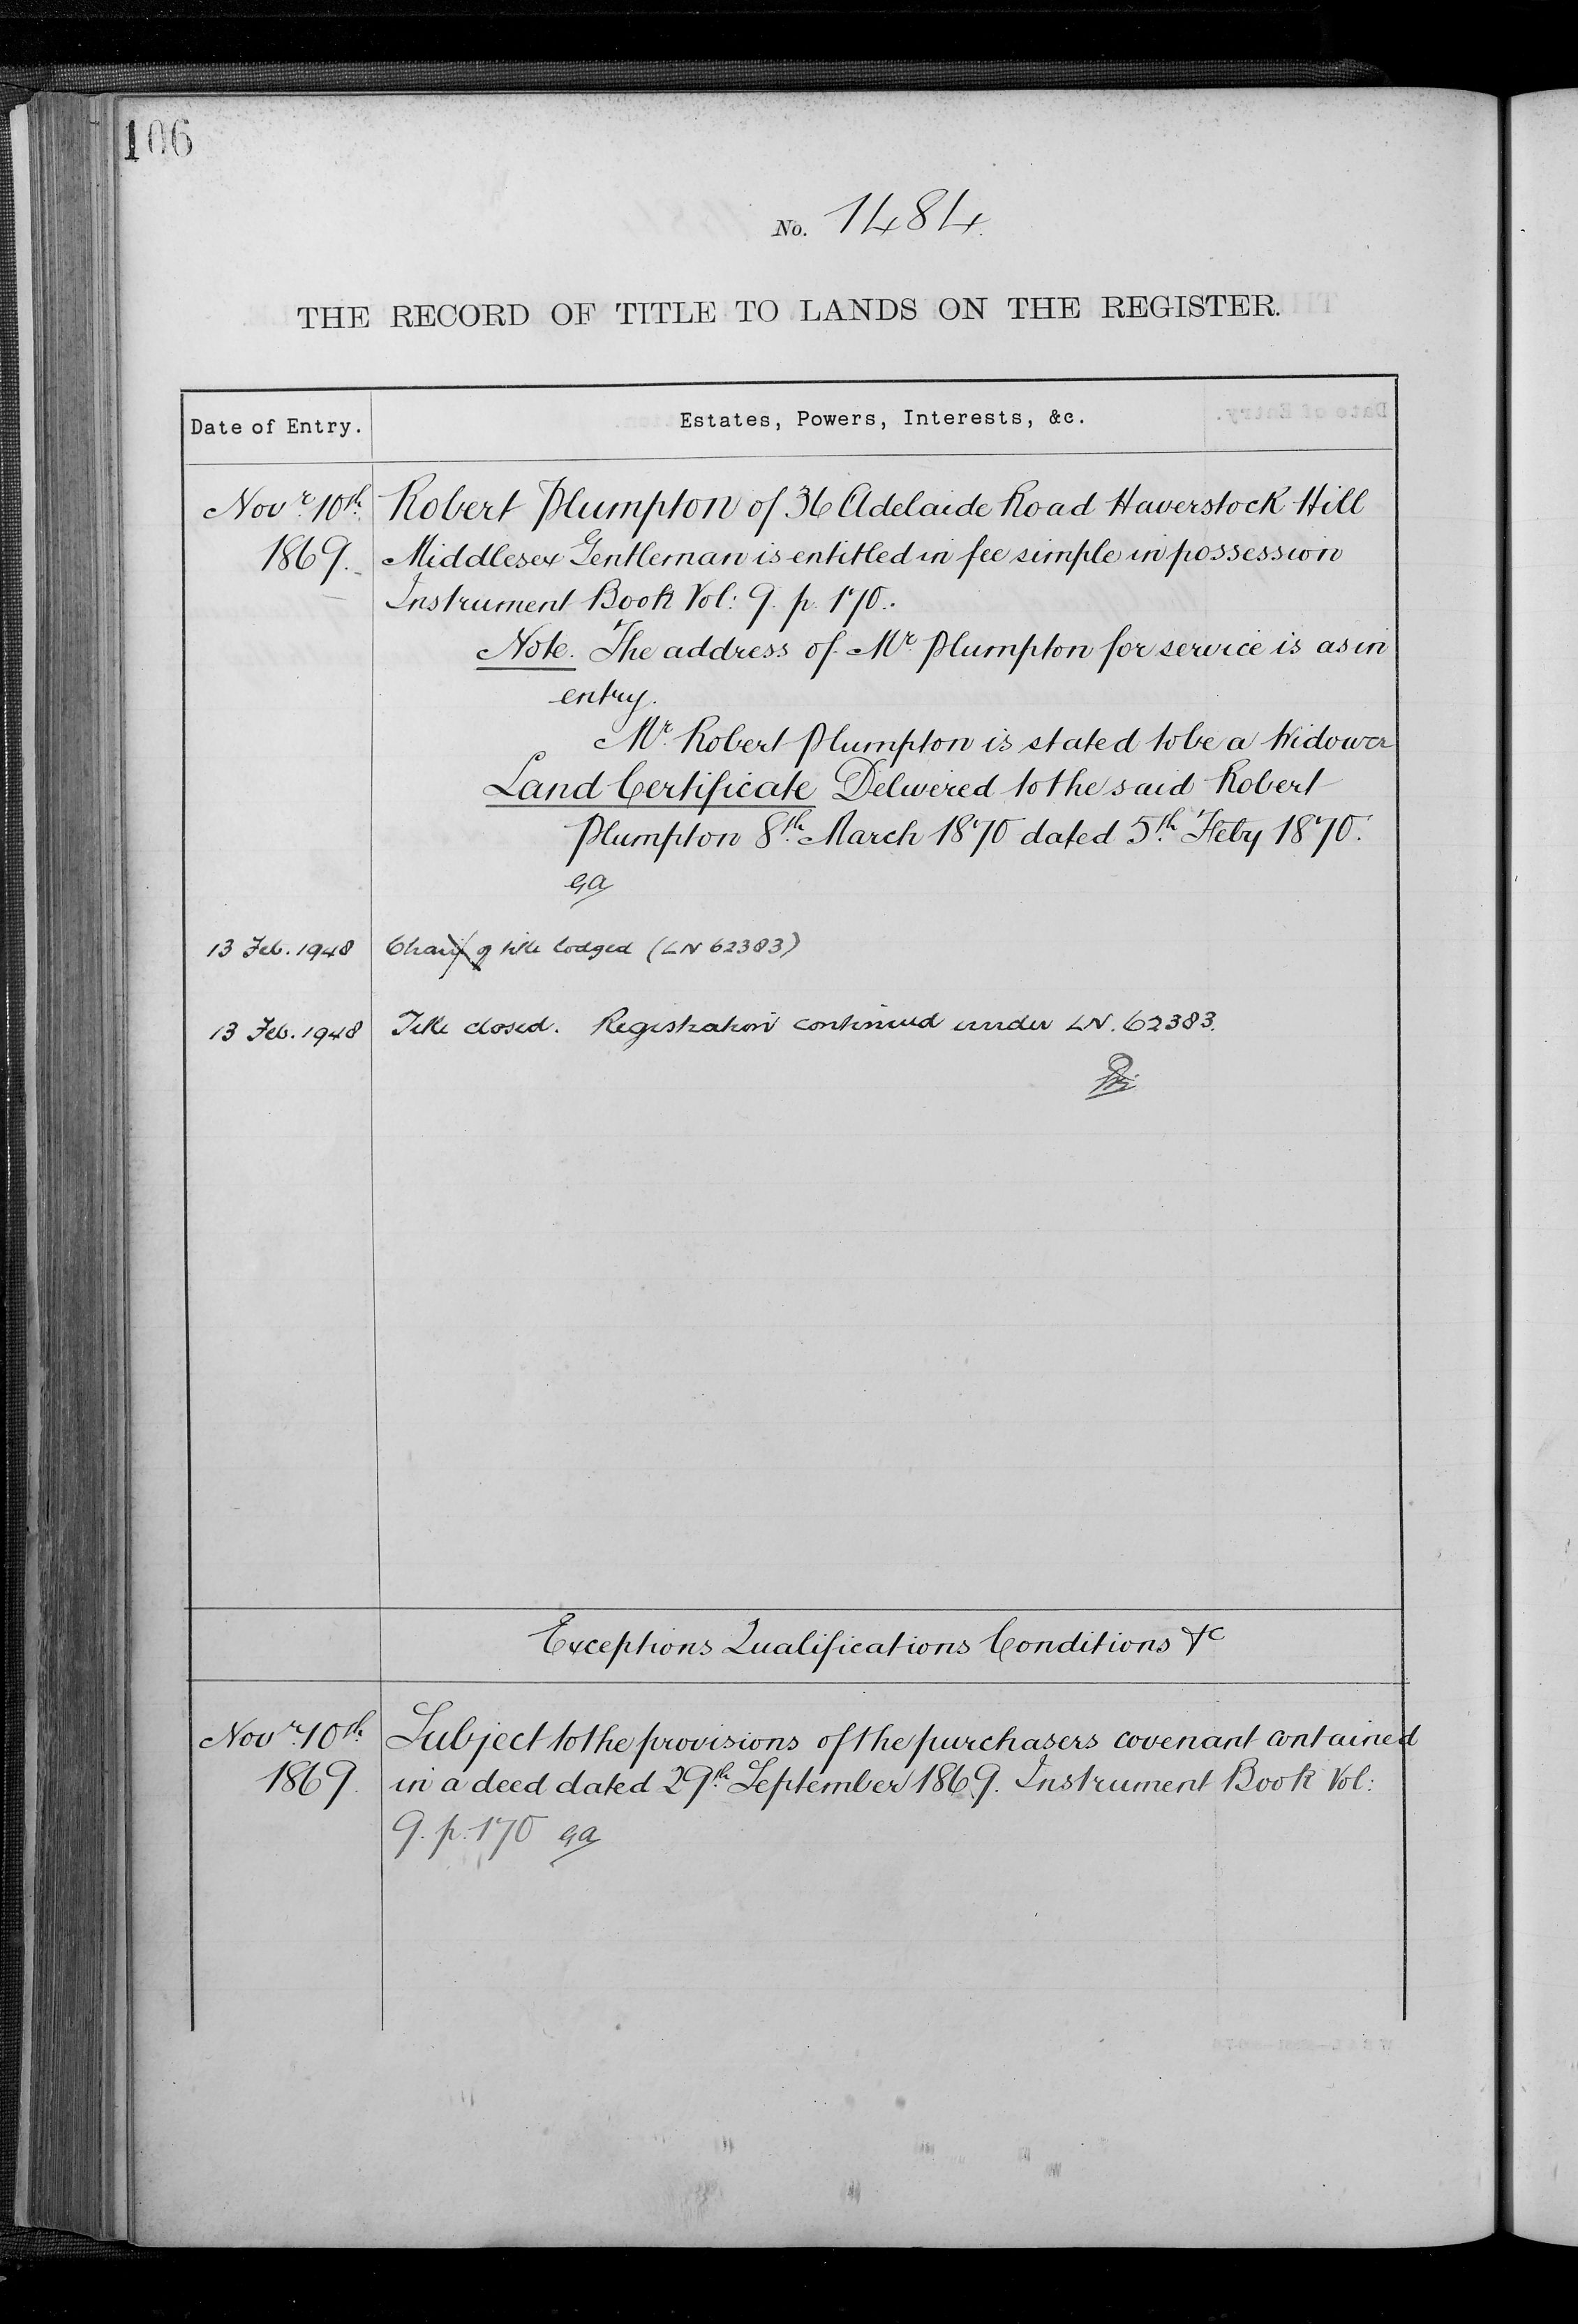 106
No. 1484.
THE RECORD OF TITLE TO LANDS ON THE REGISTER.
Date of Entry.
Estates, Powers, Interests, &c.
Novr. 10th. Robert Plumpton of 36 Adelaide Road Haverstock Hill
1869. Middlesex Gentleman is entitled in fee simple in possession
Instrument Book Vol: 9. p. 170.
Note. The address of Mr. Plumpton for service is as in
entry.
Mr. Robert Plumpton is stated to be a Widower
Land Certificate Delivered to the said Robert
Plumpton 8th. March 1870 dated 5th. Feby 1870.
13 Feb. 1948 of title lodged (LN 62383)
13 Feb. 1948 Title closed. Registration continued under LN. 62383.
Exceptions Qualifications Conditions &c
Novr. 10th. Subject to the provisions of the purchasers covenant contained
1869. in a deed dated 29th. September 1869. Instrument Book Vol:
9. p. 170